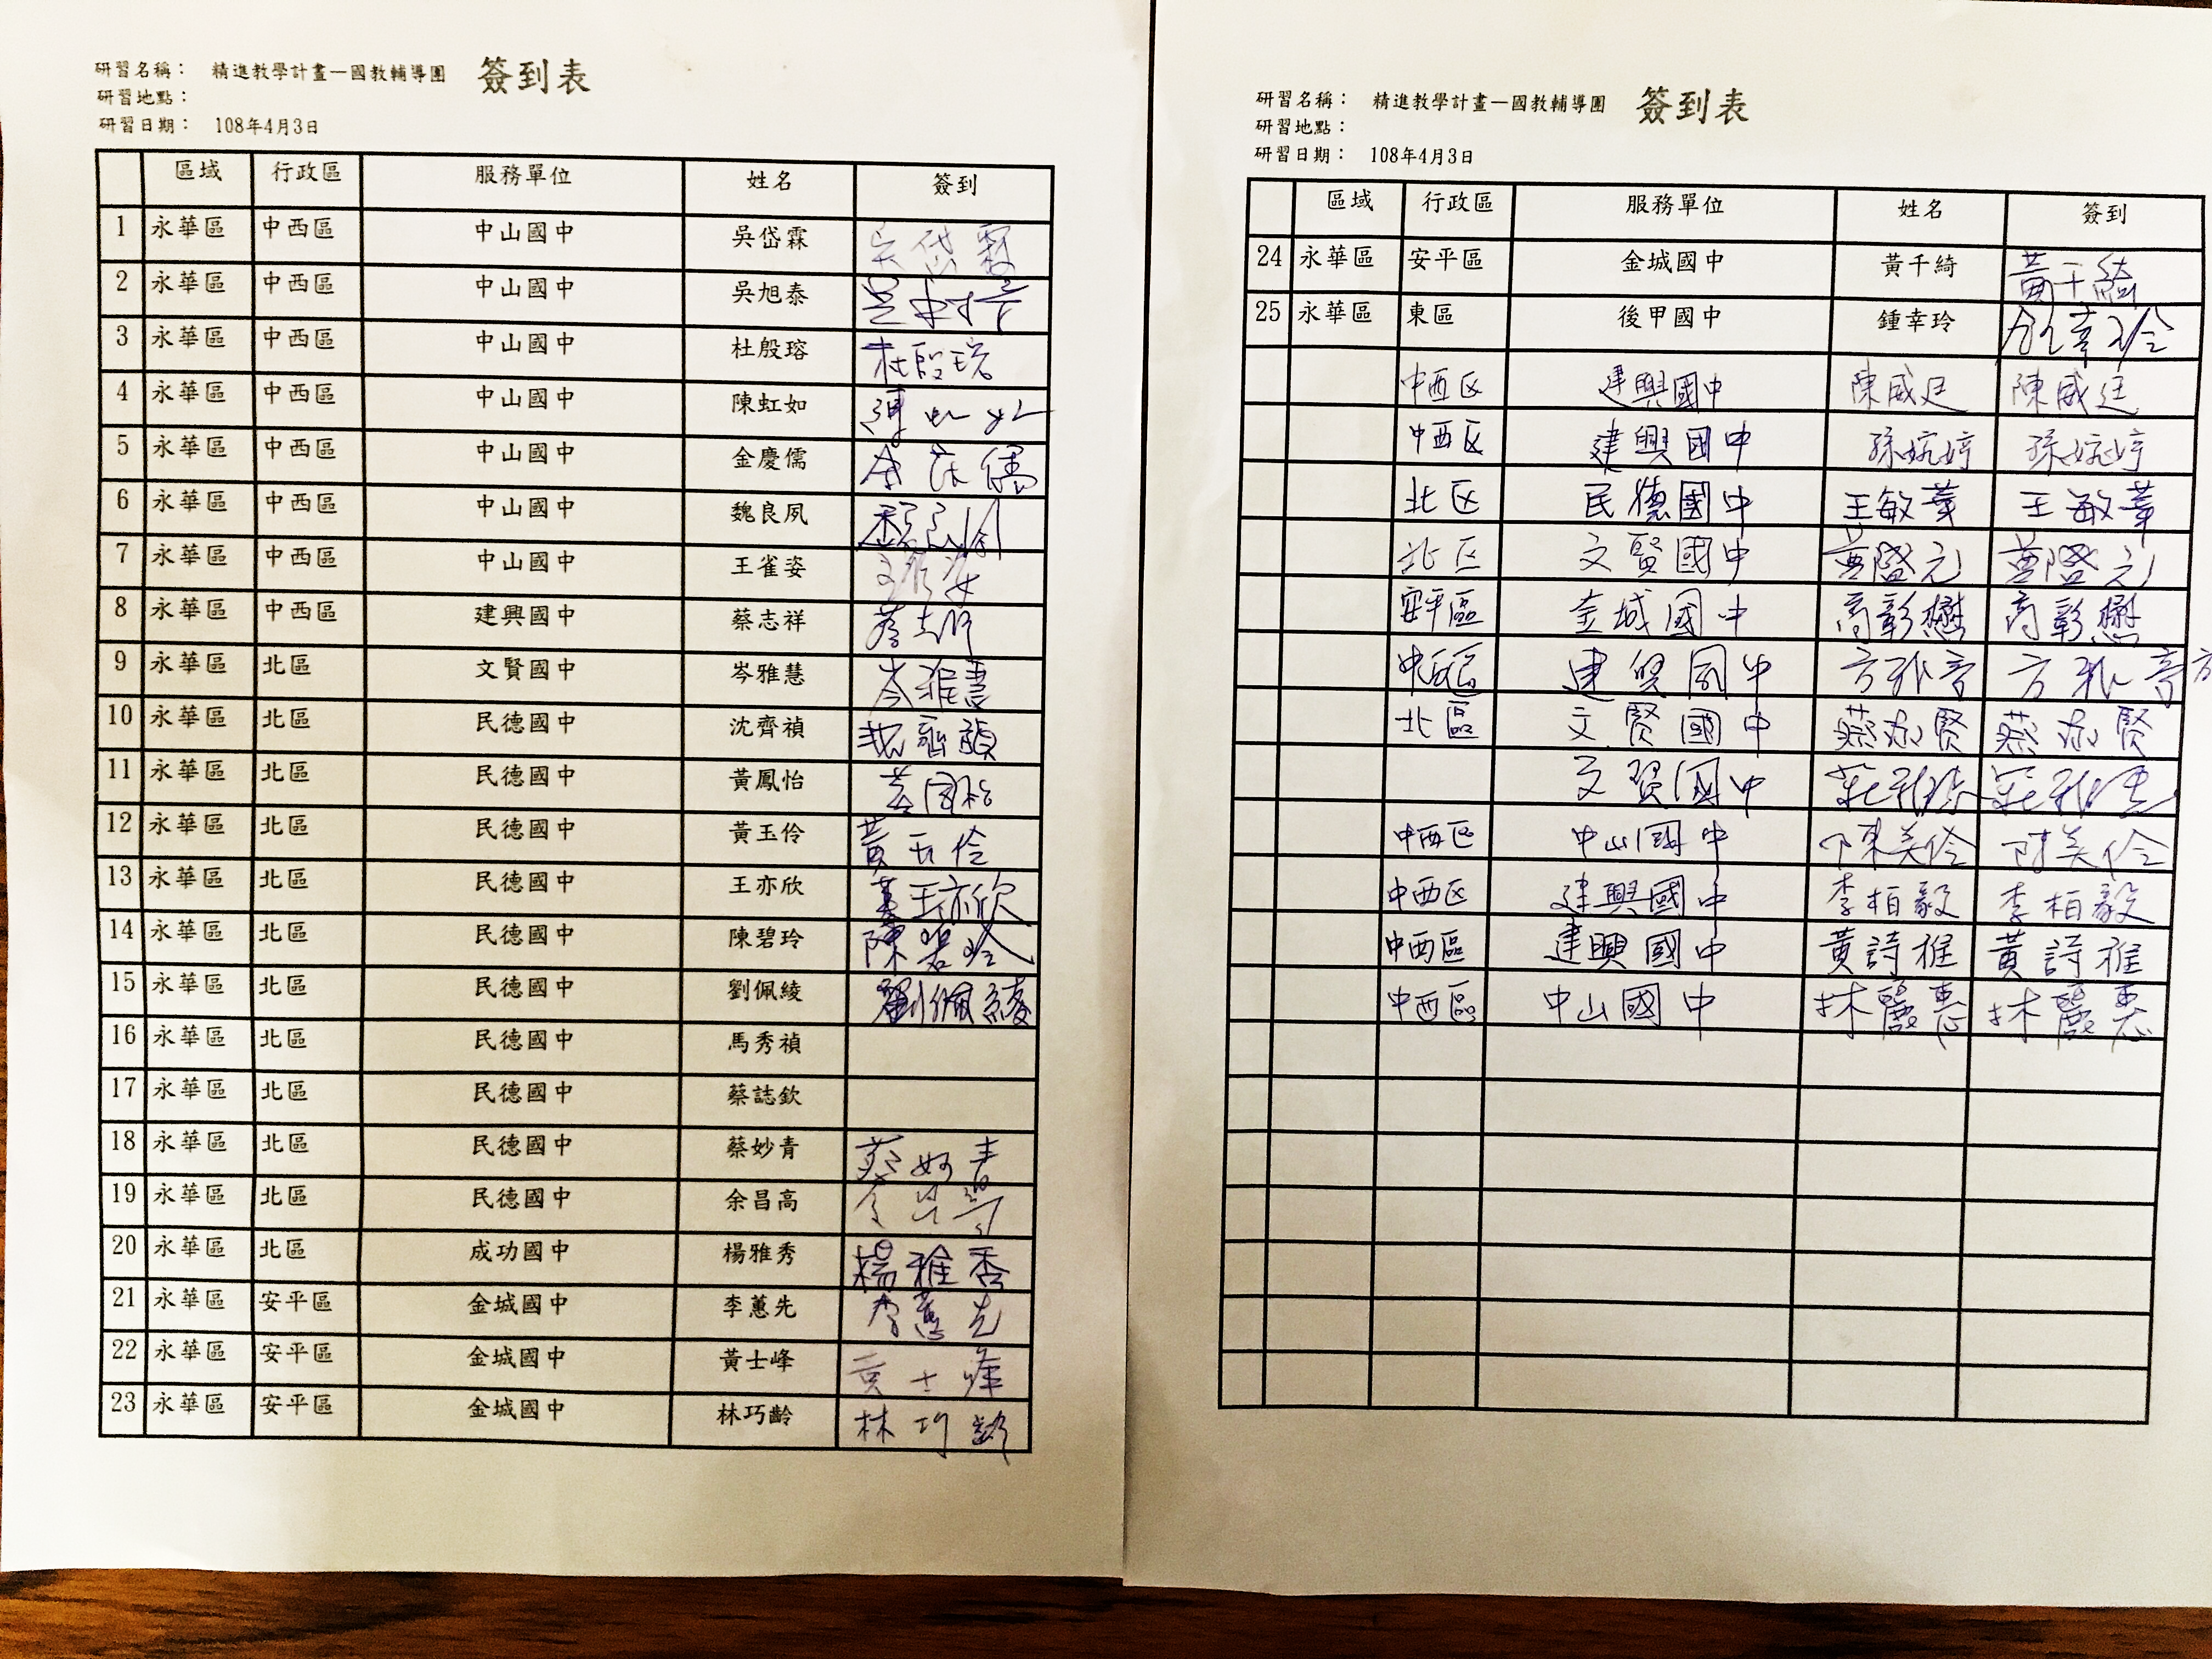 研習名稱： 精進教學計畫－國教輔導團 簽到表
研習地點：
研習日期： 108年4月3日
區域 行政區 服務單位 姓名 簽到
1 永華區 中西區 中山國中 吳岱霖 吳岱霖
2 永華區 中西區 中山國中 吳旭泰
3 永華區 中西區 中山國中 杜殷瑢 杜殷瑢
4 永華區 中西區 中山國中 陳虹如 陳虹如
5 永華區 中西區 中山國中 金慶儒 金慶儒
6 永華區 中西區 中山國中 魏良夙
7 永華區 中西區 中山國中 王雀姿
8 永華區 中西區 建興國中 蔡志祥 蔡志祥
9 永華區 北區 文賢國中 岑雅慧 岑雅慧
10 永華區 北區 民德國中 沈齊禎 沈齊禎
11 永華區 北區 民德國中 黃鳳怡 黃鳳怡
12 永華區 北區 民德國中 黃玉伶 黃玉伶
13 永華區 北區 民德國中 王亦欣 王亦欣
14 永華區 北區 民德國中 陳碧玲 陳碧玲
15 永華區 北區 民德國中 劉佩綾 劉佩綾
16 永華區 北區 民德國中 馬秀禎
17 永華區 北區 民德國中 蔡誌欽
18 永華區 北區 民德國中 蔡妙青 蔡妙青
19 永華區 北區 民德國中 余昌高 余昌高
20 永華區 北區 成功國中 楊雅秀 楊雅秀
21 永華區 安平區 金城國中 李蕙先 李蕙先
22 永華區 安平區 金城國中 黃士峰 黃士峰
23 永華區 安平區 金城國中 林巧齡 林巧齡
研習名稱： 精進教學計畫－國教輔導團 簽到表
研習地點：
研習日期： 108年4月3日
區域 行政區 服務單位 姓名 簽到
24 永華區 安平區 金城國中 黃千綺 黃千綺
25 永華區 東區 後甲國中 鍾幸玲 鍾幸玲
中西区 建興國中 陳威廷 陳威廷
中西区 建興國中 孫婉婷 孫婉婷
北区 民德國中 王敏華 王敏華
北区 文賢國中 黃啓元 黃啓元
安平區 金城國中 高彰懋 高彰懋
中西區 建興國中
北區 文賢國中
文賢國中
中西区 中山國中 陳美伶 陳美伶
中西区 建興國中 李柏毅 李柏毅
中西區 建興國中 黃詩雅 黃詩雅
中西區 中山國中 林麗惠 林麗惠